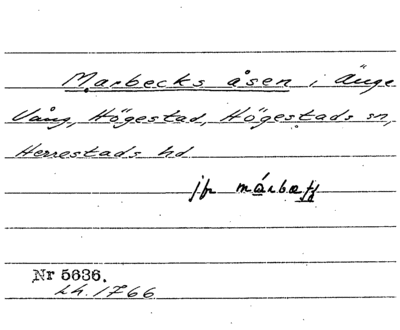 Marbecks åsen i Änge
Vång, Högestad, Högestads sn,
Herrestads hd
jfr márbæ
Nr 5636.
Lh. 1766